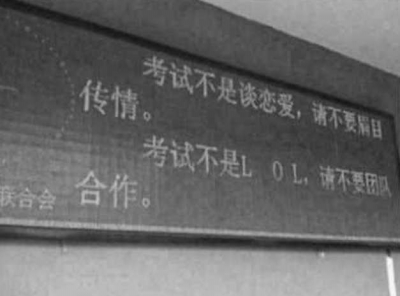 考试不是谈恋爱，请不要眉目
传情。
考试不是L O L，请不要团队
联合会 合作。